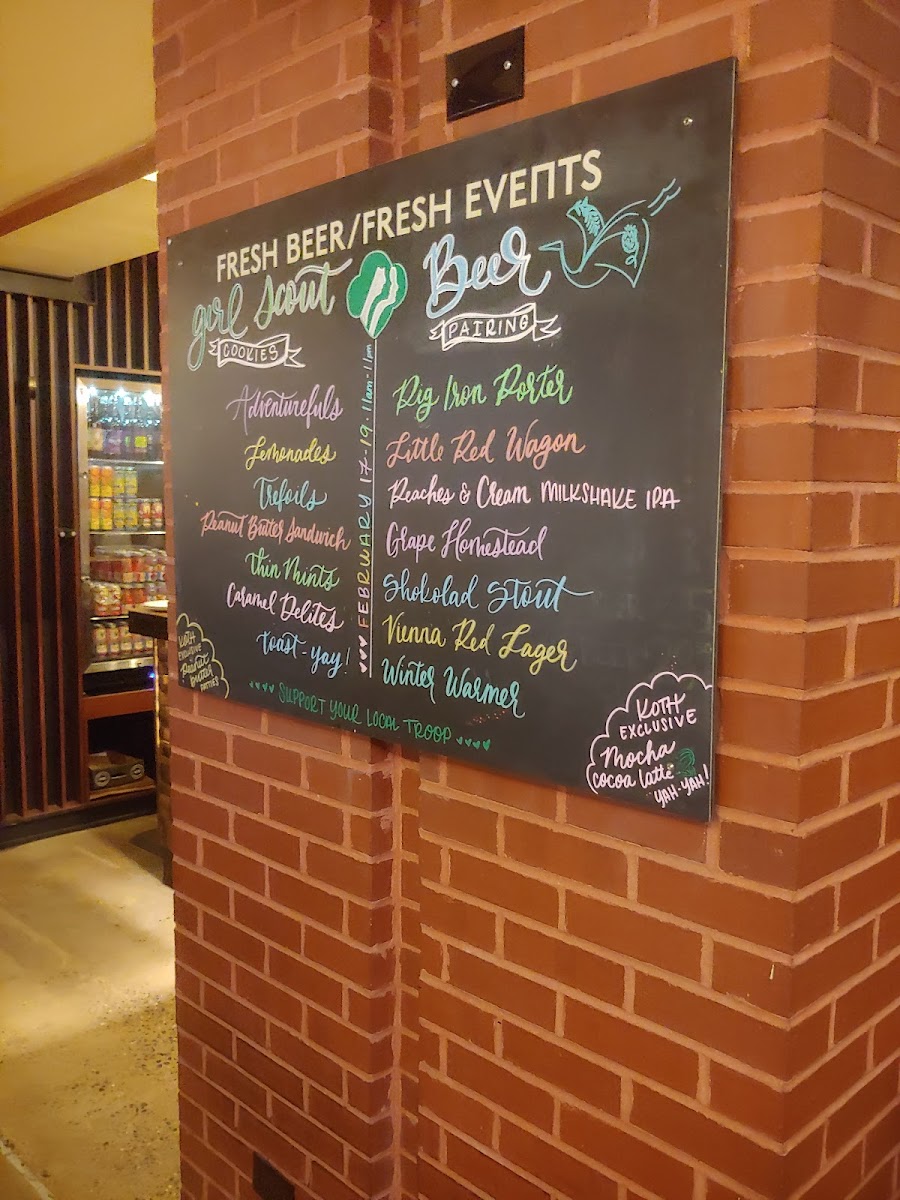 FRESH BEER/FRESH EVENTS
Girl Scout
COOKIES
Adventurefuls
Lemonades
Trefoils
Peanut Butter Sandwich
Thin Mints
Caramel Delites
Toast-yay!
FEBRUARY 17-19 · 11am-11pm
Beer
PAIRING
Pig Iron Porter
Little Red Wagon
Peaches & Cream MILKSHAKE IPA
Grape Homestead
Shokolad Stout
Vienna Red Lager
Winter Warmer
KOTH
EXCLUSIVE
Peanut
butter
PATTIES
SUPPORT YOUR LOCAL TROOP
KOTH
EXCLUSIVE
Mocha
cocoa latte
YAH-YAH!